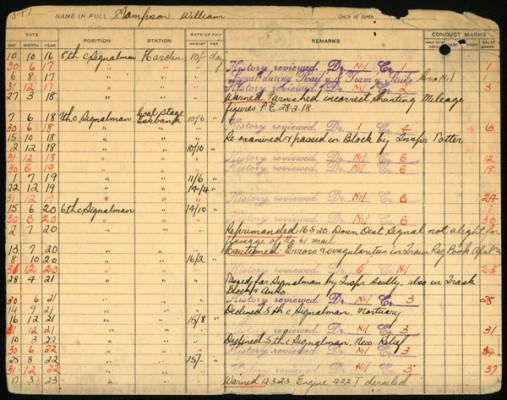 NAME IN FULL Sampson William DATE OF BIRTH
DATE POSITION STATION RATE OF PAY REMARKS CONDUCT MARKS
DAY AMOUNT PER
10 10 16 8th c Signalman Harden 10/- day
30 6 17 " " History reviewed. Dr. Nil Cr. 1
6 8 17 " "
31 12 17 " " History reviewed. Dr. Nil Cr. 2 3
27 3 18 " " Warned. Furnished incorrect Shunting Mileage
figures.
7 6 18 7th c Signalman Coal Stage 10/6 "
30 6 18 " Eskbank History reviewed. Dr. Cr. 6
15 10 18 " " Re-examined & passed in Block by Inspr Potter
2 12 18 " " 10/10 "
31 12 18 " " History reviewed. Dr. Nil Cr. 6 12
30 6 19 " " History reviewed. Dr. Nil Cr. 6 18
1 7 19 " " 11/6 "
22 12 19 " " 14/4 "
31 12 19 " " History reviewed. Dr. Nil Cr. 6 24
15 6 20 6th c Signalman " 14/10 "
30 6 20 " " History reviewed. Dr. Nil Cr. 6 30
2 7 20 " " Reprimanded 16.5.20 Down Dist Signal not alight for
passage of No 61 mail
13 7 20 " " Cautioned. Errors & irregularities in Train Reg Book
8 10 20 " " 16/2 "
31 12 20 " " History reviewed. Dr. 5 Nil 25
28 4 21 " " Passed for Signalman by Inspr also in Track
Block & Auto.
30 6 21 " " History reviewed. Dr. Nil Cr. 3 28
14 9 21 " " Declined 5th c Signalman, Mortuary
16 12 21 " " 15/8 "
31 12 21 " " History reviewed. Dr. Nil Cr. 3 31
10 3 22 " " Declined 5th c Signalman. New Relief
30 6 22 " " History reviewed. Dr. Nil Cr. 3 34
25 8 22 " " 15/- "
31 12 22 " " History reviewed. Dr. Nil Cr. 3 37
17 3 23 " " Warned 12.3.23 Engine 422 T derailed